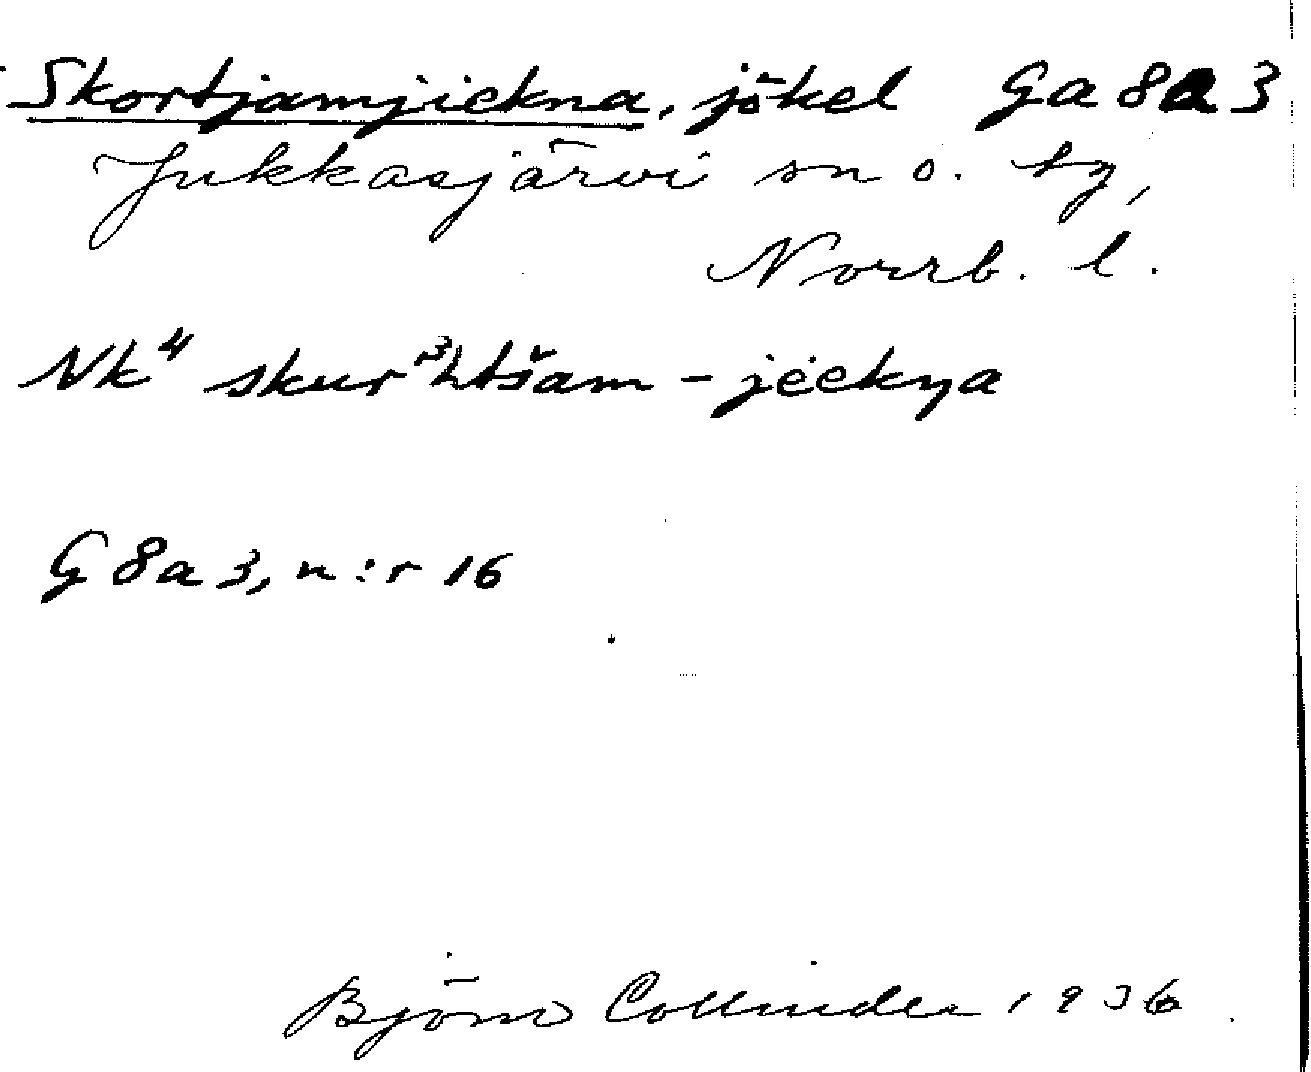 Skortjamjiekna, jökel Ga 8a 3
Jukkasjärvi sn o. tg,
Norrb. l.
Nk⁴ skur³htšam-jėėkŋa
G 8a 3, n:r 16
Björn Collinder 1936